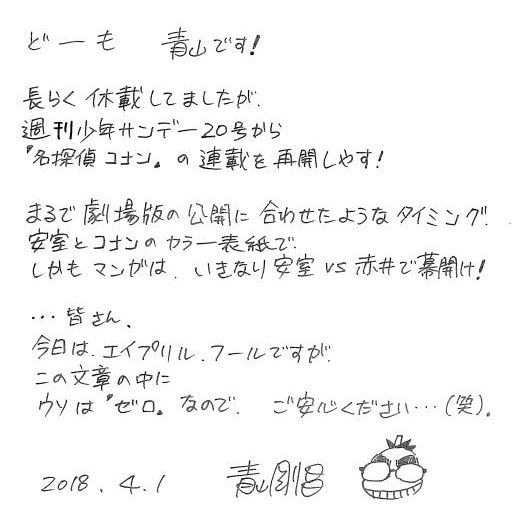 どーも 青山です!
長らく休載してましたが、
週刊少年サンデー20号から
『名探偵コナン』の連載を再開しやす!
まるで劇場版の公開に合わせたようなタイミング、
安室とコナンのカラー表紙で、
しかもマンガは、いきなり安室vs赤井で幕開け!
…皆さん、
今日は、エイプリル、フールですが、
この文章の中に
ウソは『ゼロ』なので、ご安心ください…(笑)。
2018.4.1 青山剛昌